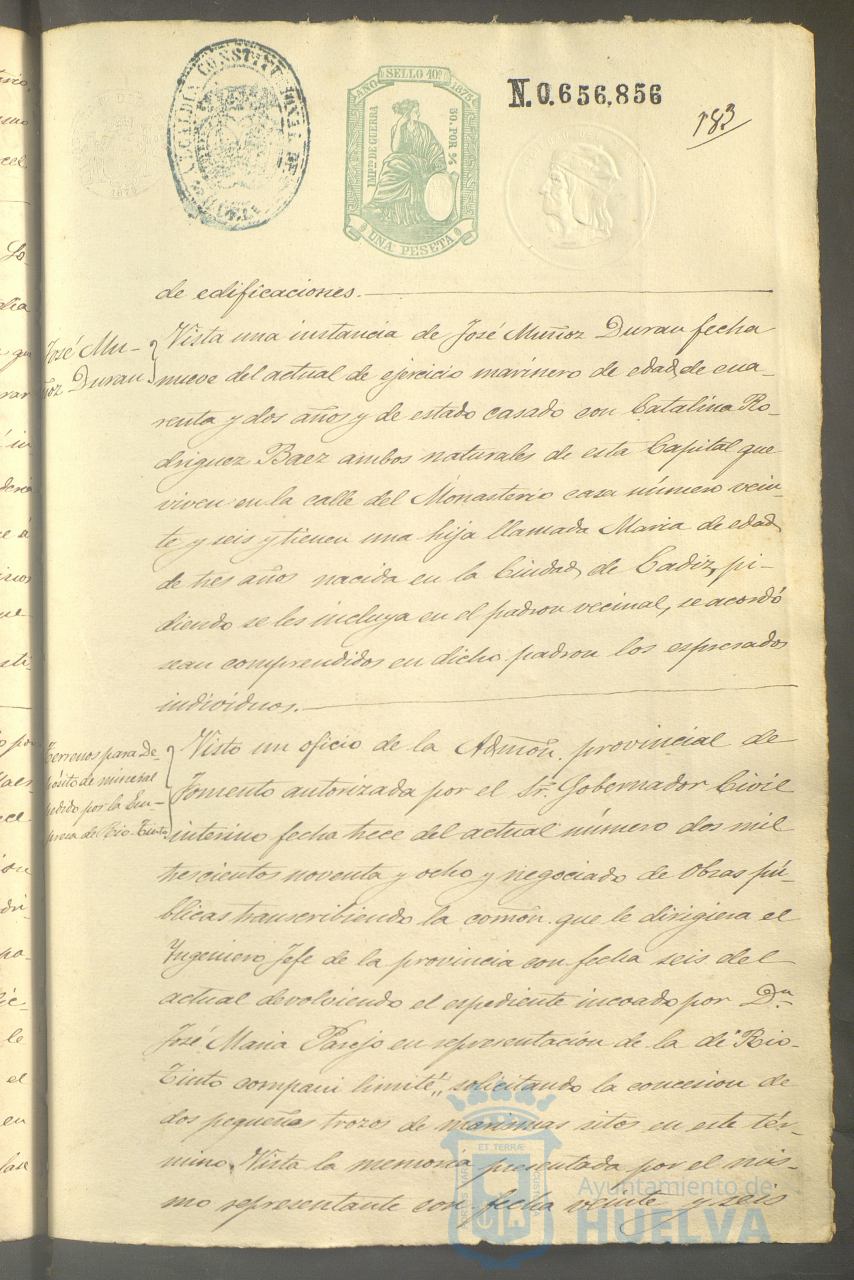 ALCALDIA CONSTITUCIONAL DE HUELVA
AÑO SELLO 10º 1875
IMPTO DE GUERRA
50 POR %
UNA PESETA
N.0.656,856
183
de edificaciones.
José Mu-
ñoz Duran
Vista una instancia de José Muñoz Duran fecha
nueve del actual de ejercicio marinero de edad de cua-
renta y dos años y de estado casado con Catalina Ro-
driguez Baez ambos naturales de esta Capital que
viven en la calle del Monasterio casa número vein-
te y seis y tienen una hija llamada Maria de edad
de tres años nacida en la Ciudad de Cadiz, pi-
diendo se les incluya en el padron vecinal, se acordó
sean comprendidos en dicho padron los espresados
individuos.
Terrenos para De-
pósito de mineral
pedido por la Em-
presa de Rio-Tinto
Visto un oficio de la Admón. provincial de
Fomento autorizada por el Sr. Gobernador Civil
interino fecha trece del actual número dos mil
trescientos noventa y ocho y negociado de Obras pú-
blicas transcribiendo la comón. que le dirigiera el
Ingeniero Jefe de la provincia con fecha seis del
actual devolviendo el espediente incoado por Dn.
José Maria Parejo en representación de la de "Rio-
Tinto compani limité" solicitando la concesion de
dos pequeños trozos de marismas sitos en este tér-
mino. Vista la memoria presentada por el mis-
mo representante con fecha veinte y seis
Ayuntamiento de
HUELVA